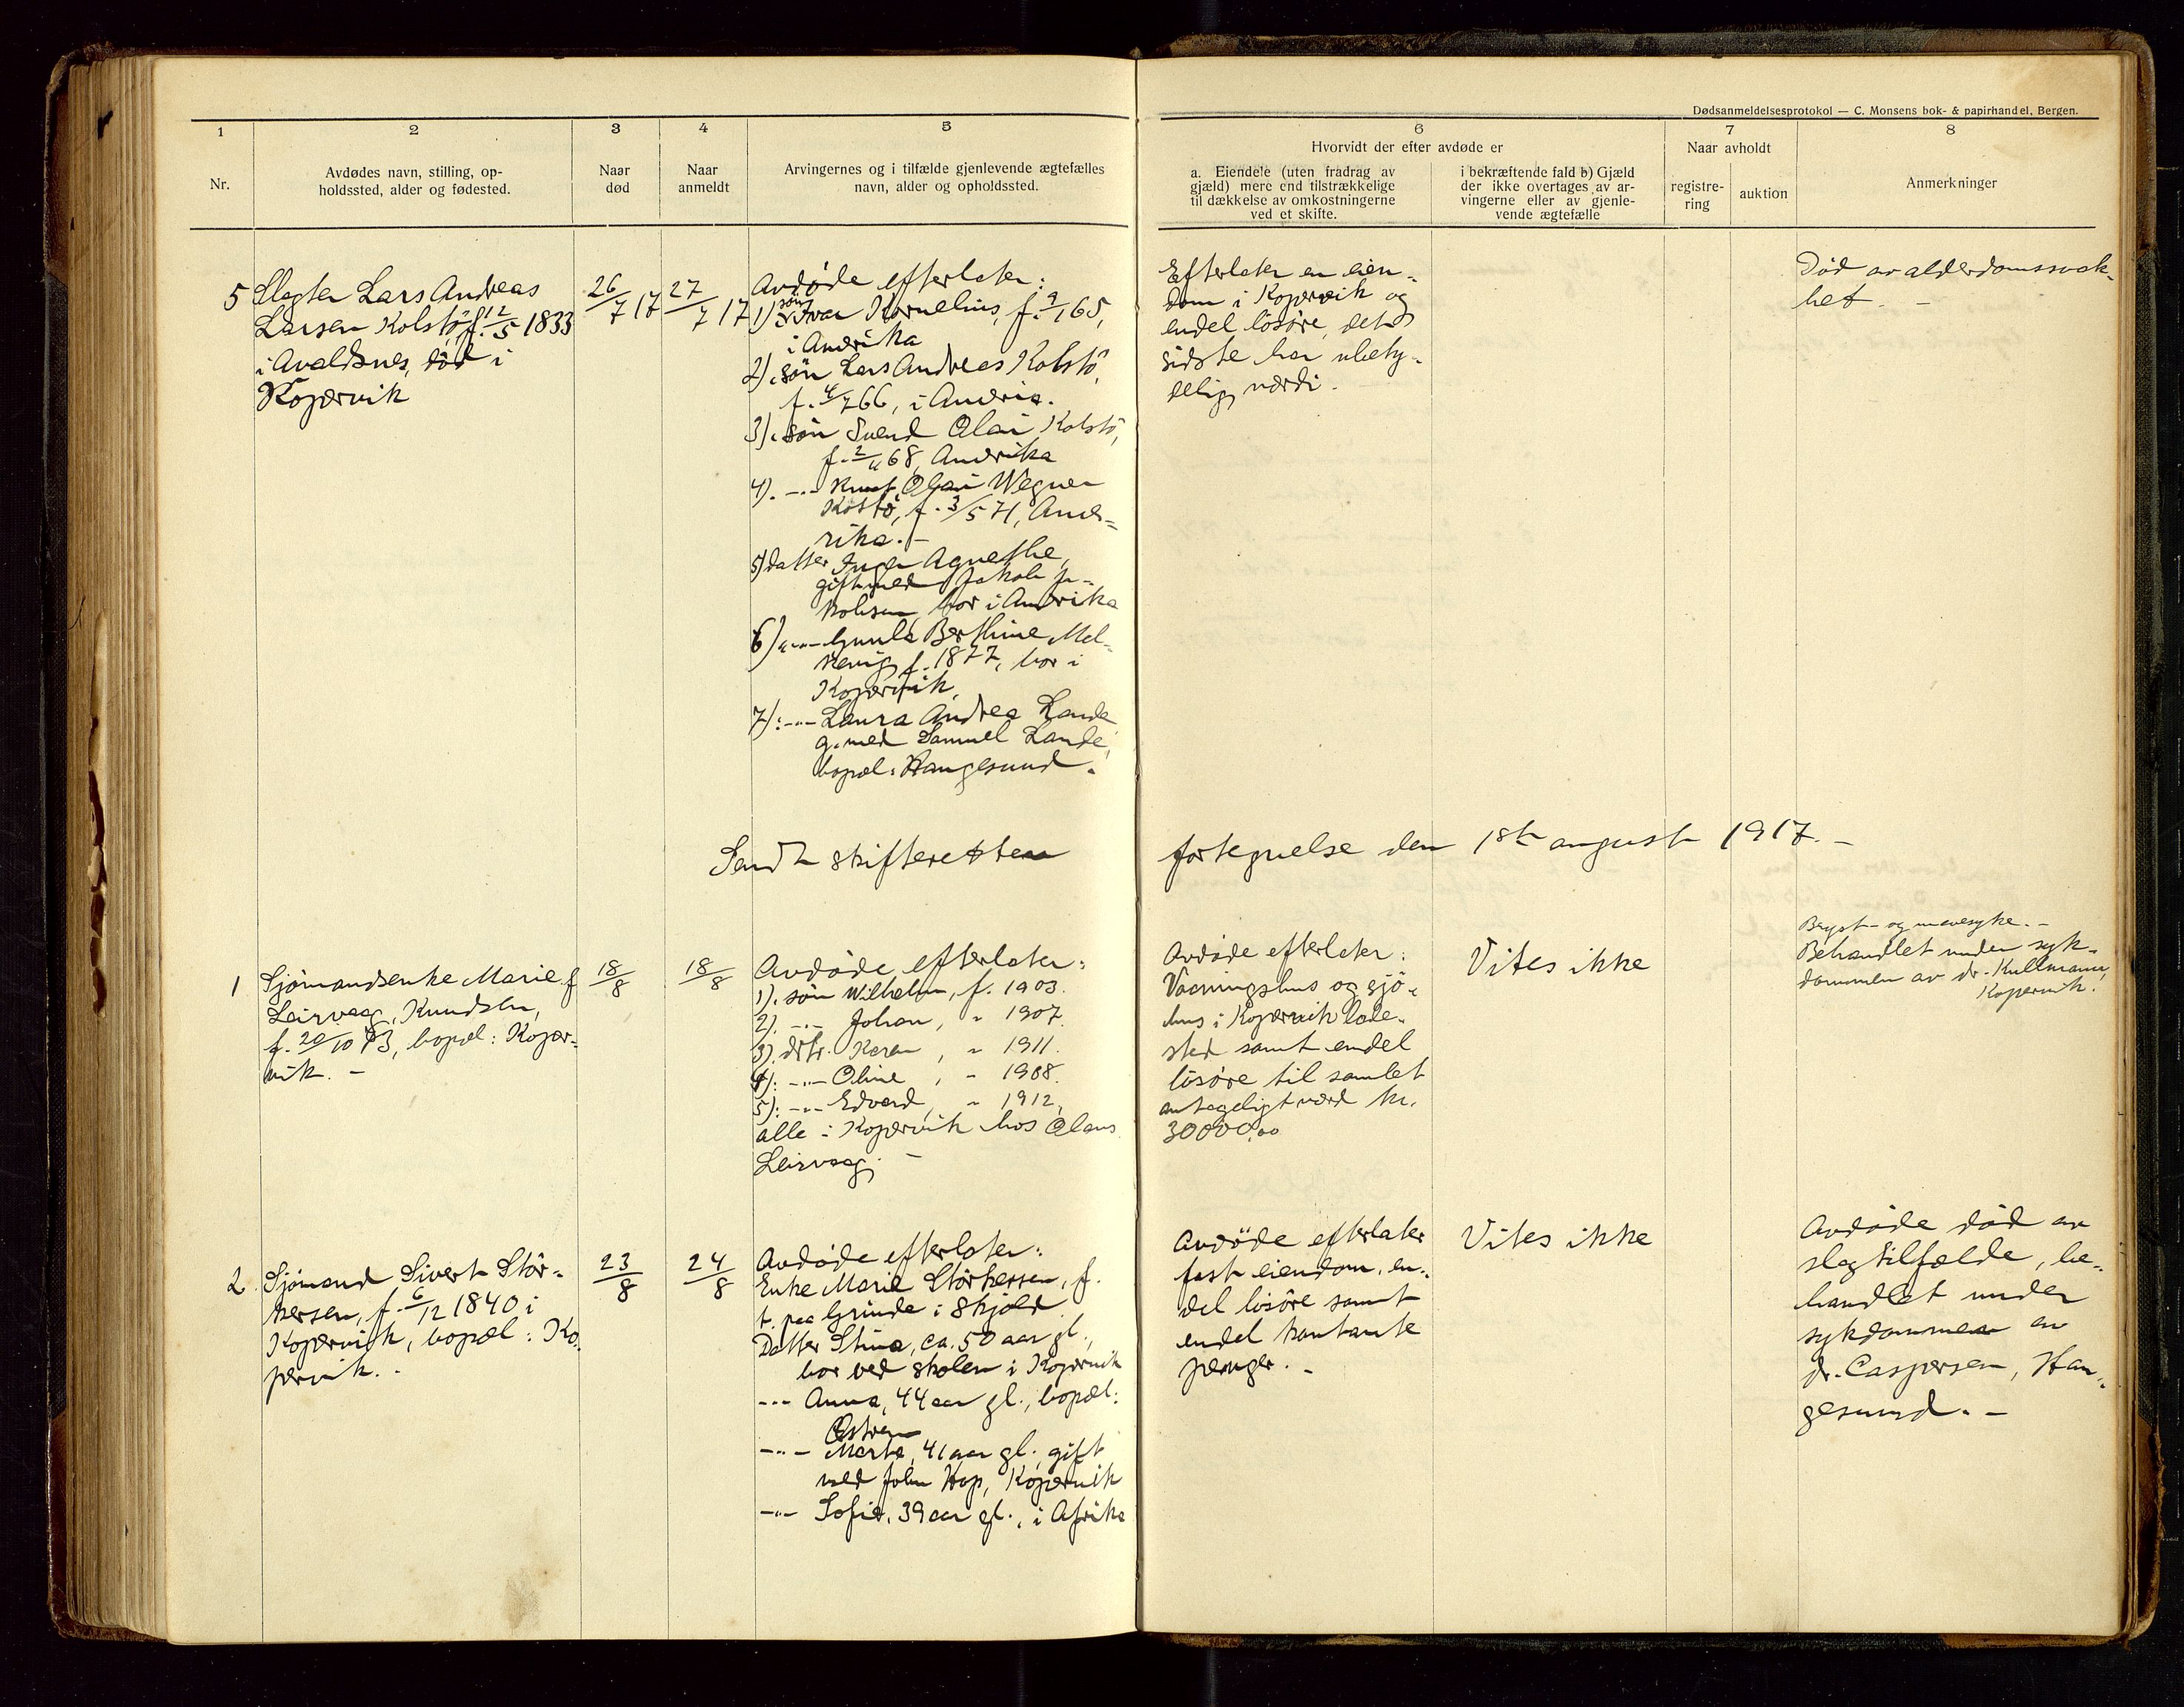 Dødsanmeldelsesprotokol — C. Monsens bok- & papirhandel, Bergen.
1
2
3
4
5
6
7
8
Nr.
Avdødes navn, stilling, op-
holdssted, alder og fødested.
Naar
død
Naar
anmeldt
Arvingernes og i tilfælde gjenlevende ægtefælles
navn, alder og opholdssted.
Hvorvidt der efter avdøde er
a. Eiendele (uten fradrag av
gjæld) mere end tilstrækkelige
til dækkelse av omkostningerne
ved et skifte.
i bekræftende fald b) Gjæld
der ikke overtages av ar-
vingerne eller av gjenle-
vende ægtefælle
Naar avholdt
registre-
ring
auktion
Anmerkninger
5
Slagter Lars Andreas
Larsen Kolstö, f. 12/5 1833
i Avaldsnes, död i
Kopervik
26/7 17
27/7 17
Avdöde efterlater:
1) søn Ivar Kornelius, f. 9/1 65,
i Amerika
2). søn Lars Andreas Kolstö,
f. 4/7 66, i Amerika.
3). søn Svend Olai Kolstö,
f. 2/11 68, Amerika
4). -"- Knut Olai Wegner
Kolstö, f. 3/5 71, Ame-
rika. -
5) datter Inger Agnethe,
gift med Jakob Ja-
kobsen, bor i Amerika
6) -"- Gunla Berthine Mel-
kevig, f. 1877, bor i
Kopervik,
7). -"- Laura Andrea Lande
g. med Samuel Lande,
bopæl: Haugesund.
Efterlater en eien-
dom i Kopervik og
endel lösöre, det
sidste har ubety-
delig værdi.
Död av alderdomssvak-
het. -
Sendt skifteretten
fortegnelse den 1ste august 1917. -
1
Sjömandsenke Marie
Leirvaag, Knudsen,
f. 20/10 73, bopæl: Koper-
vik. -
18/8
18/8
Avdöde efterlater:
1). søn Wilhelm, f. 1903.
2). -"- Johan, " 1907.
3). dtr. Karen, " 1911.
4). -"- Oline, " 1908.
5). -"- Edvard, " 1912,
alle i Kopervik hos Olaus
Leirvaag. -
Avdöde efterlater:
Vaaningshus og sjö-
hus i Kopervik lade-
sted samt endel
lösöre til samlet
antageligt værd kr.
30000,00
Vites ikke
Bryst- og mavesyke. -
Behandlet under syk-
dommen av dr. Kullmann,
Kopervik.
2
Sjömand Sivert Stör-
kersen, f. 6/12 1840 i
Kopervik, bopæl: Ko-
pervik. -
23/8
24/8
Avdöde efterlater:
Enke Marie Störkersen, f.
t. paa Grinde i Skjold
Datter Stina, ca. 50 aar gl.,
bor ved skolen i Kopervik
-"- Anna, 44 aar gl., bopæl:
Østren
-"- Marta, 41 aar gl., gift
med John Hop, Kopervik
-"- Sofie, 39 aar gl., i Afrika
Avdöde efterlater
fast eiendom, en-
del lösöre samt
endel kontante
penger. -
Vites ikke
Avdöde död av
slagtilfælde, be-
handlet under
sykdommen av
dr. Caspersen, Hau-
gesund. -